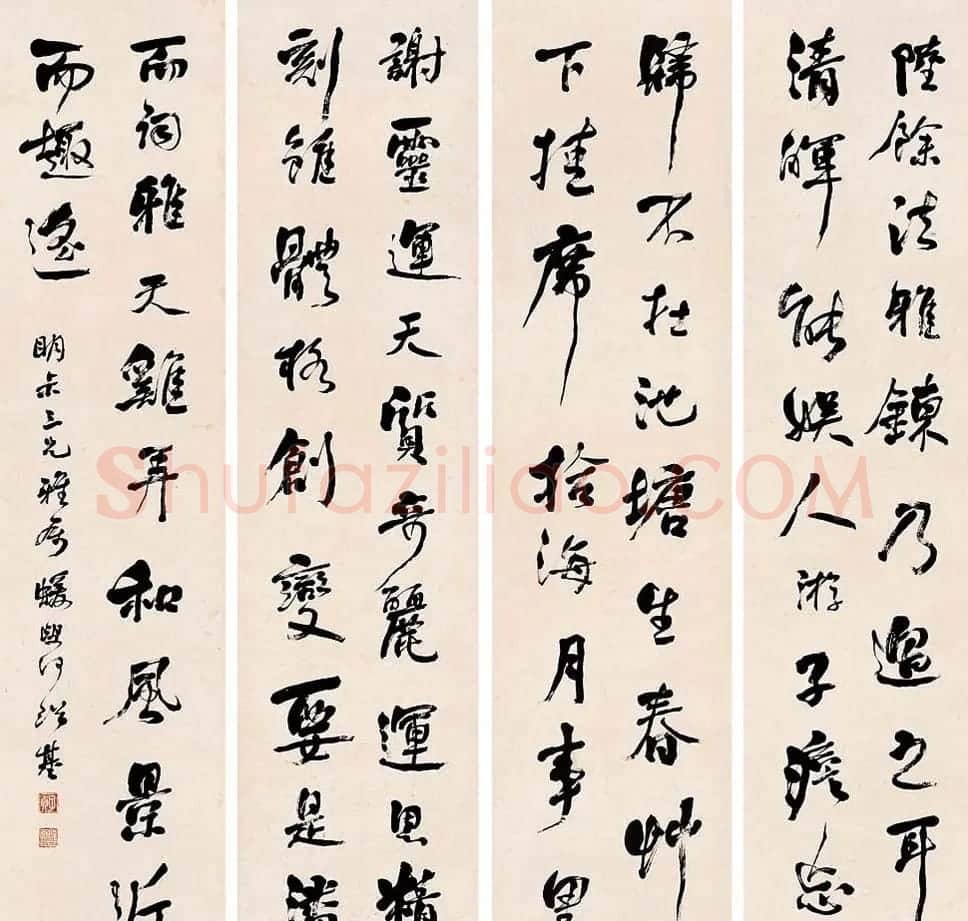 陸餘法雅鍊乃過之耳
清暉能娛人游子憺忘
歸不在池塘生春艸
下挂席拾海月事
謝靈運天質奇麗運思精
刻雖體格創變要是潘
而詞雅天雞弄和風景近
而趣遙
明尗三兄雅屬 蝯叟何紹基
Shufaziliao.COM